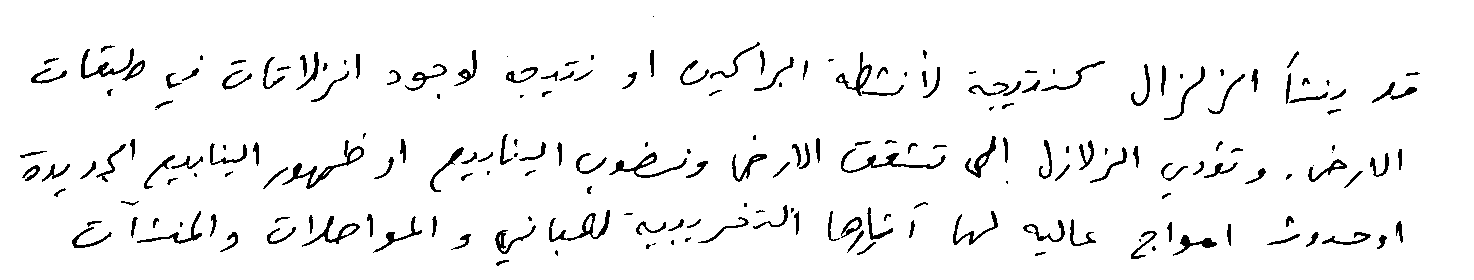 قد ينشأ الزلزال كنتيجة لأنشطة البراكين او نتيجه لوجود انزلاقات في طبقات
الارض. وتؤدي الزلازل إلى تشقق الارض ونضوب الينابيع او ظهور الينابيع الجديدة
او حدوث امواج عاليه لها آثارها التخريبية للمباني والمواصلات والمنشآت